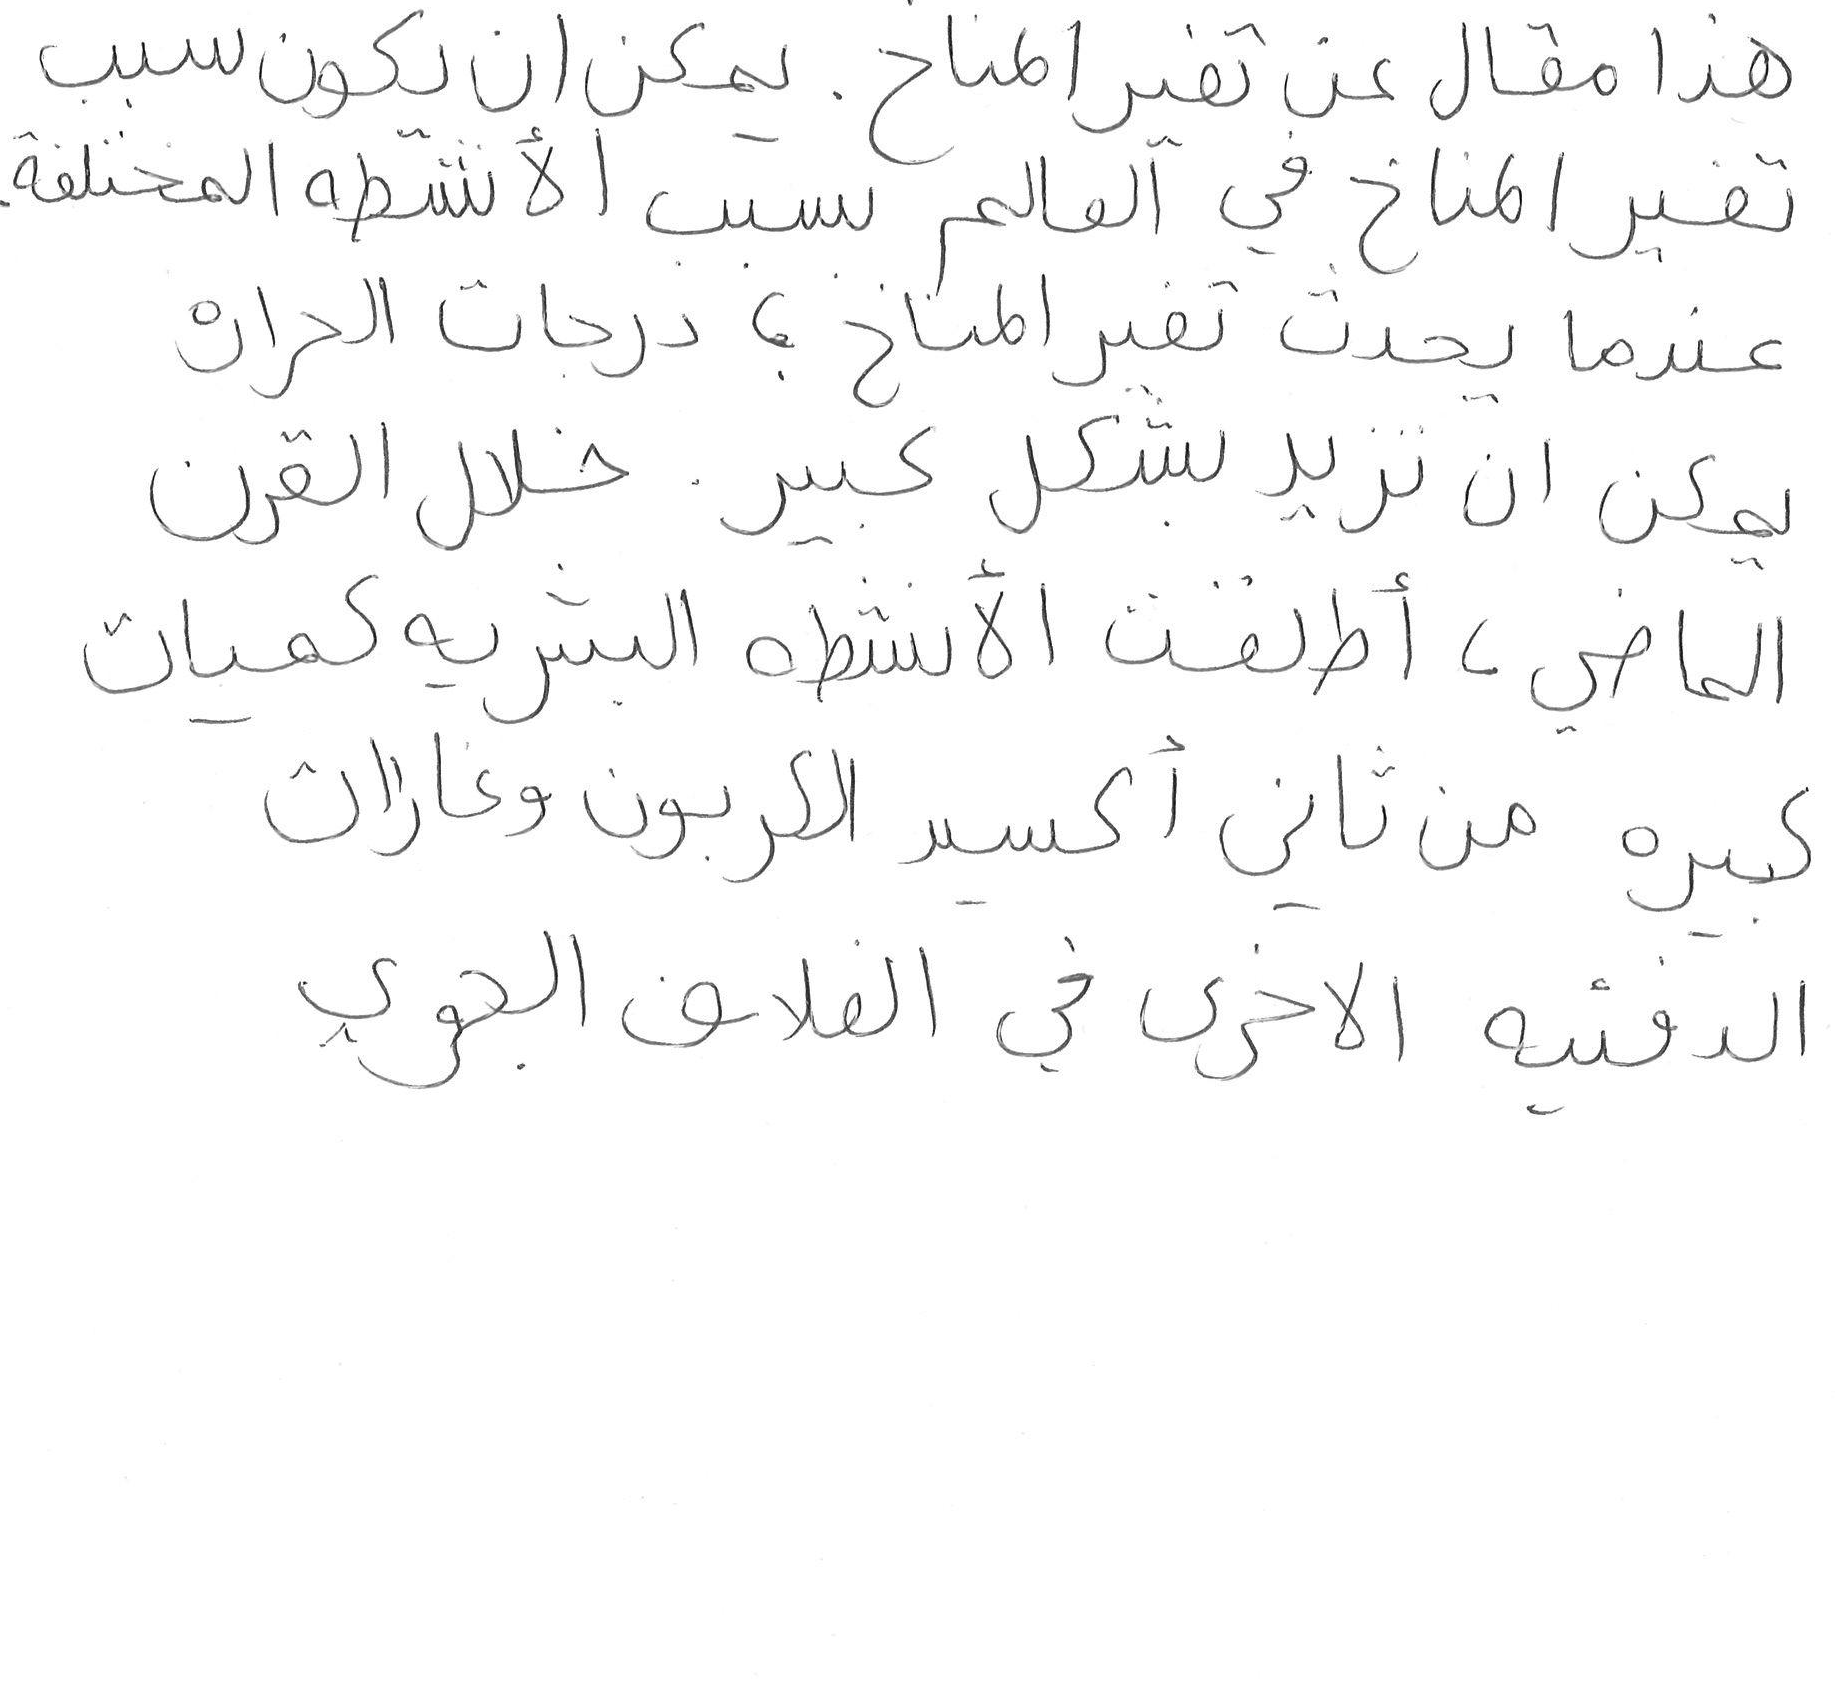 هذا مقال عن تغير المناخ. يمكن ان تكون سبب
تغير المناخ في العالم بسبب الأنشطه المختلفة.
عندما يحدث تغير المناخ ، درجات الحراره
يمكن ان تزيد بشكل كبير. خلال القرن
الماضي، أطلقت الأنشطه البشريه كميات
كبيره من ثاني أكسيد الكربون وغازات
الدفئيه الاخرى في الغلاف الجوي